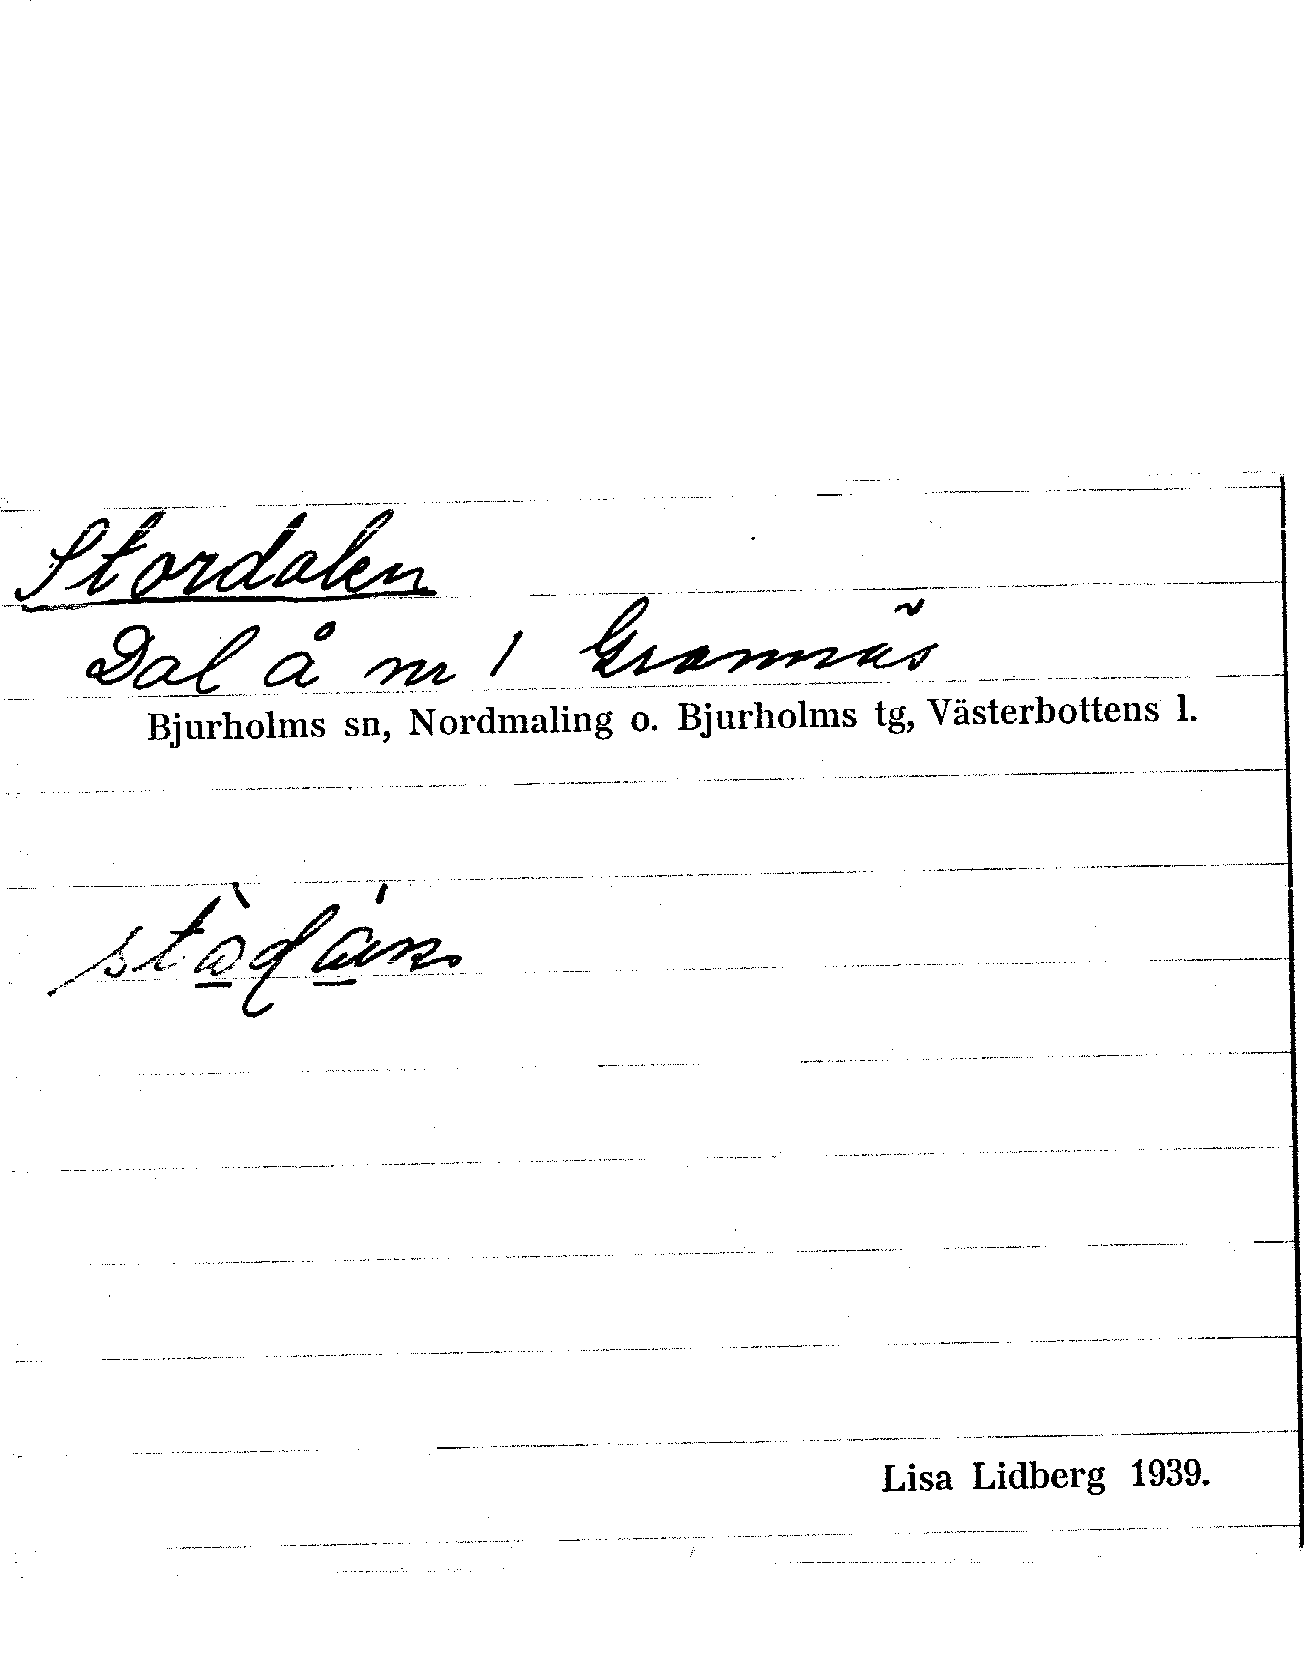 Stordalen
Dal å nr 1 Grannäs
Bjurholms sn, Nordmaling o. Bjurholms tg, Västerbottens l.
Lisa Lidberg 1939.